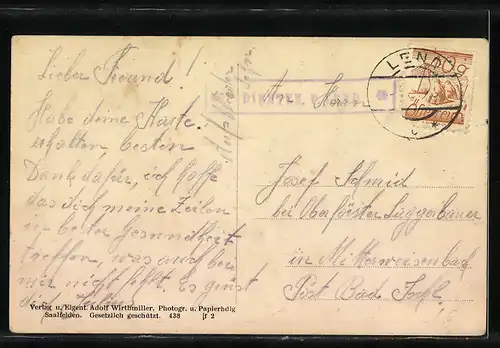 Lieber Freund!
Habe deine Karte
erhalten, besten
Dank dafür, ich hoffe
das dich meine Zeilen
in bester Gesundheit
treffen, was auch bei
mir nicht fehlt. Es grüst
dich
Verlag u. Eigent. Adolf Wirthmiller, Photogr. u. Papierhdlg
Saalfelden. Gesetzlich geschützt. 438 f 2
LEND
DIENTEN
An Herrn
Josef Schmid
bei Oberförster Luggeibauer
in Mitterweisenbach
Post Bad Ischl